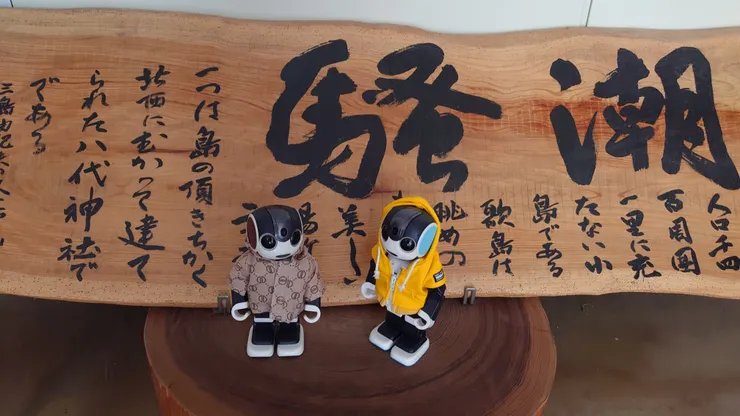 潮騒
人口千四
百周囲
一里に充
たない小
島である
歌島は
眺めの
美し
一つは島の頂きちかく
北西にむかって建て
られた八代神社で
である